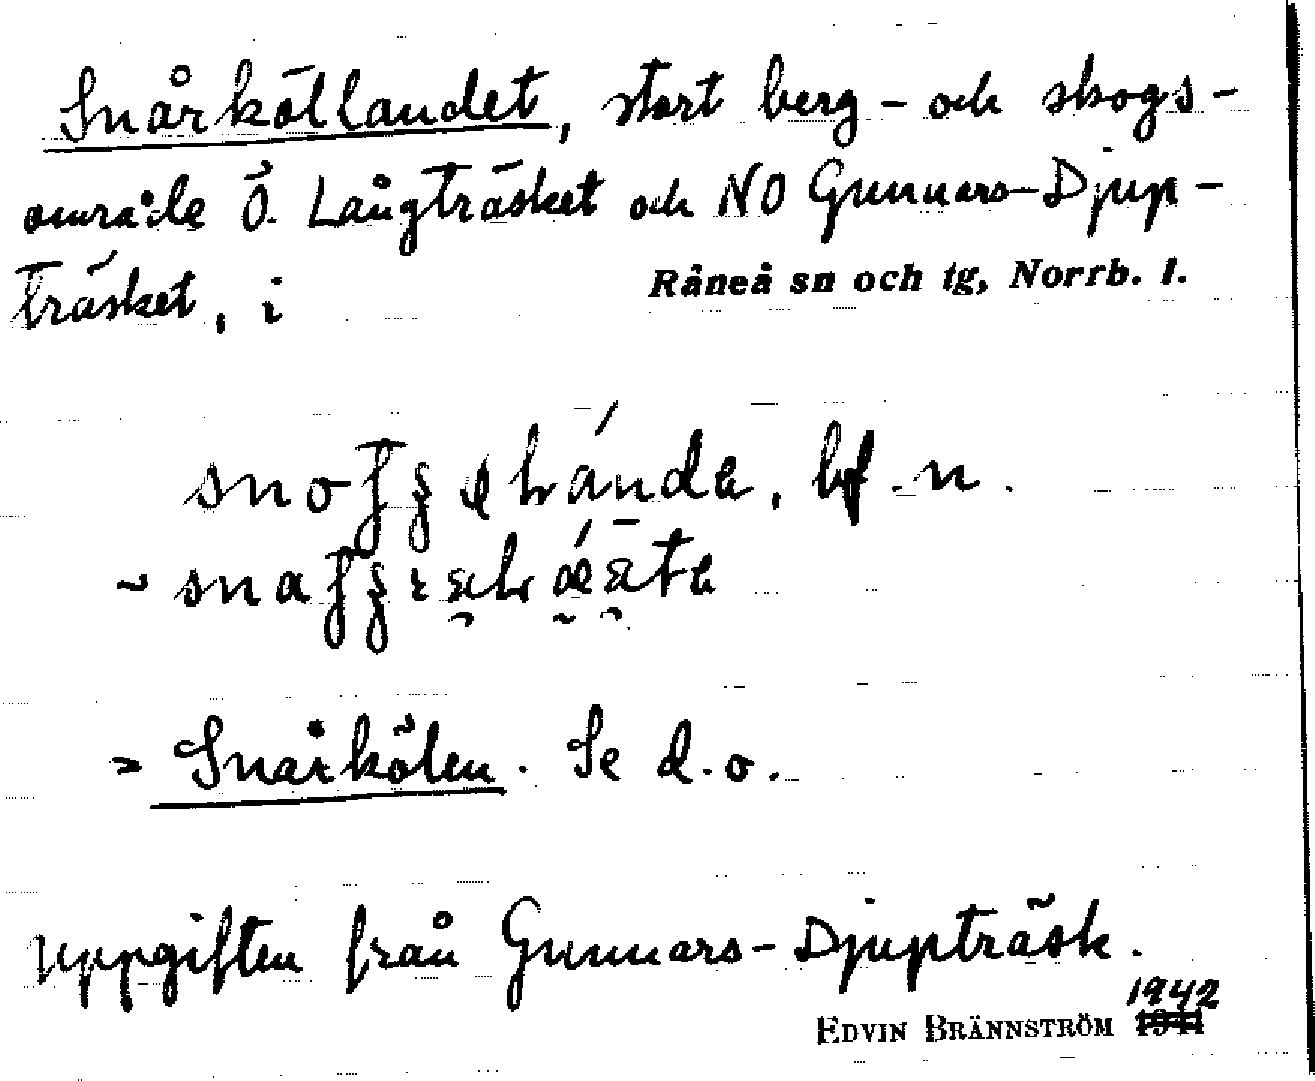 Snårköllandet, stort berg- och skogs-
område Ö. Långträsket och NO Gunnars-Djup-
träsket, i Råneå sn och tg, Norrb. l.
bf. n.
= Snårkölen. Se d. o.
Uppgiften från Gunnars-Djupträsk.
1942
EDVIN BRÄNNSTRÖM 1941